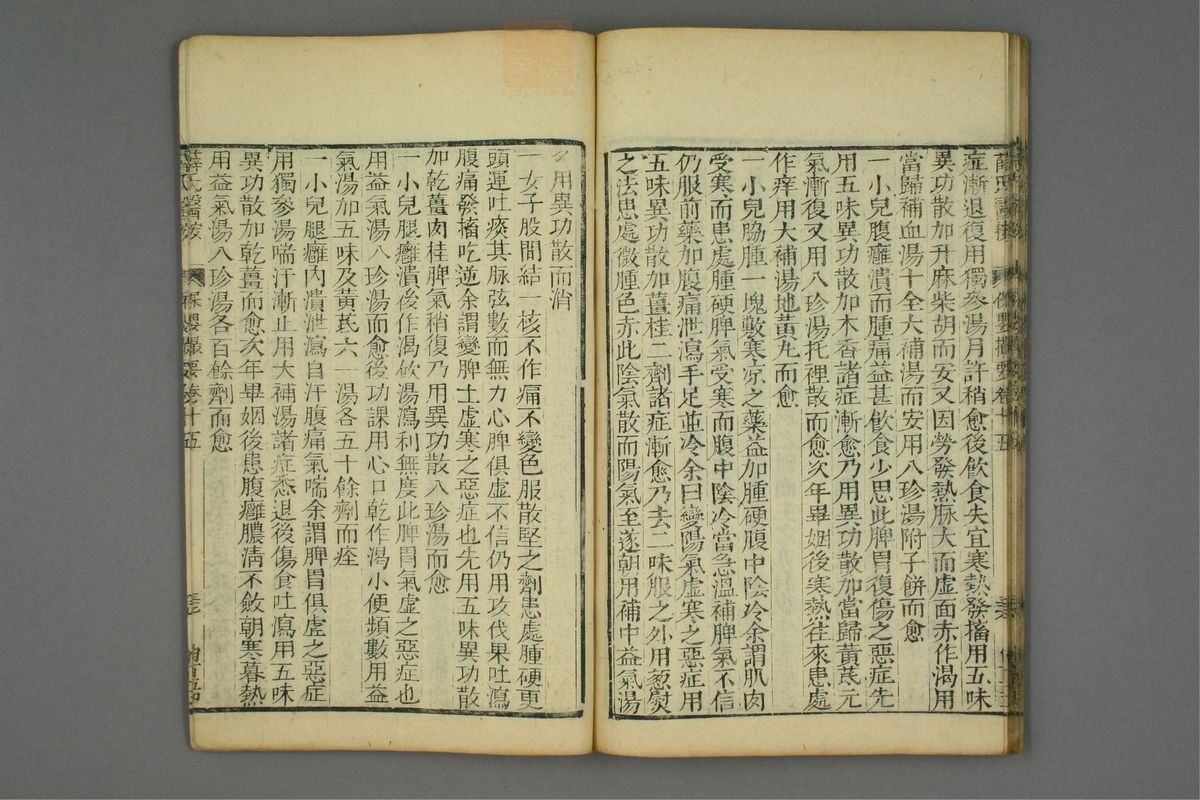 薛氏醫按
保嬰撮要卷十五
症漸退復用獨參湯月許稍愈後飲食失宜寒熱發搐用五味
異功散加升麻柴胡而安又因勞發熱脉大而虛面赤作渴用
當歸補血湯十全大補湯而安用八珍湯附子餅而愈
一小兒腹癰潰而腫痛益甚飲食少思此脾胃復傷之惡症先
用五味異功散加木香諸症漸愈乃用異功散加當歸黃芪元
氣漸復又用八珍湯托裡散而愈次年畢姻後寒熱往來患處
作痒用大補湯地黃丸而愈
一小兒脇腫一塊敷寒涼之藥益加腫硬腹中陰冷余謂肌肉
受寒而患處腫硬脾氣受寒而腹中陰冷當急溫補脾氣不信
仍服前藥加腹痛泄瀉手足並冷余曰變陽氣虛寒之惡症用
五味異功散加薑桂二劑諸症漸愈乃去二味服之外用葱熨
之法患處微腫色赤此陰氣散而陽氣至遂朝用補中益氣湯
夕用異功散而消
一女子股間結一核不作痛不變色服散堅之劑患處腫硬更
頭運吐痰其脉弦數而無力心脾俱虛不信仍用攻伐果吐瀉
腹痛發搐吃逆余謂變脾土虛寒之惡症也先用五味異功散
加乾薑肉桂脾氣稍復乃用異功散八珍湯而愈
一小兒腿癰潰後作渴飲湯瀉利無度此脾胃氣虛之惡症也
用益氣湯八珍湯而愈後功課用心口乾作渴小便頻數用益
氣湯加五味及黃芪六一湯各五十餘劑而痊
一小兒腿癰內潰泄瀉自汗腹痛氣喘余謂脾胃俱虛之惡症
用獨參湯喘汗漸止用大補湯諸症悉退後傷食吐瀉用五味
異功散加乾薑而愈次年畢姻後患腹癰膿清不斂朝寒暮熱
用益氣湯八珍湯各百餘劑而愈
薛氏醫按
保嬰撮要卷十五